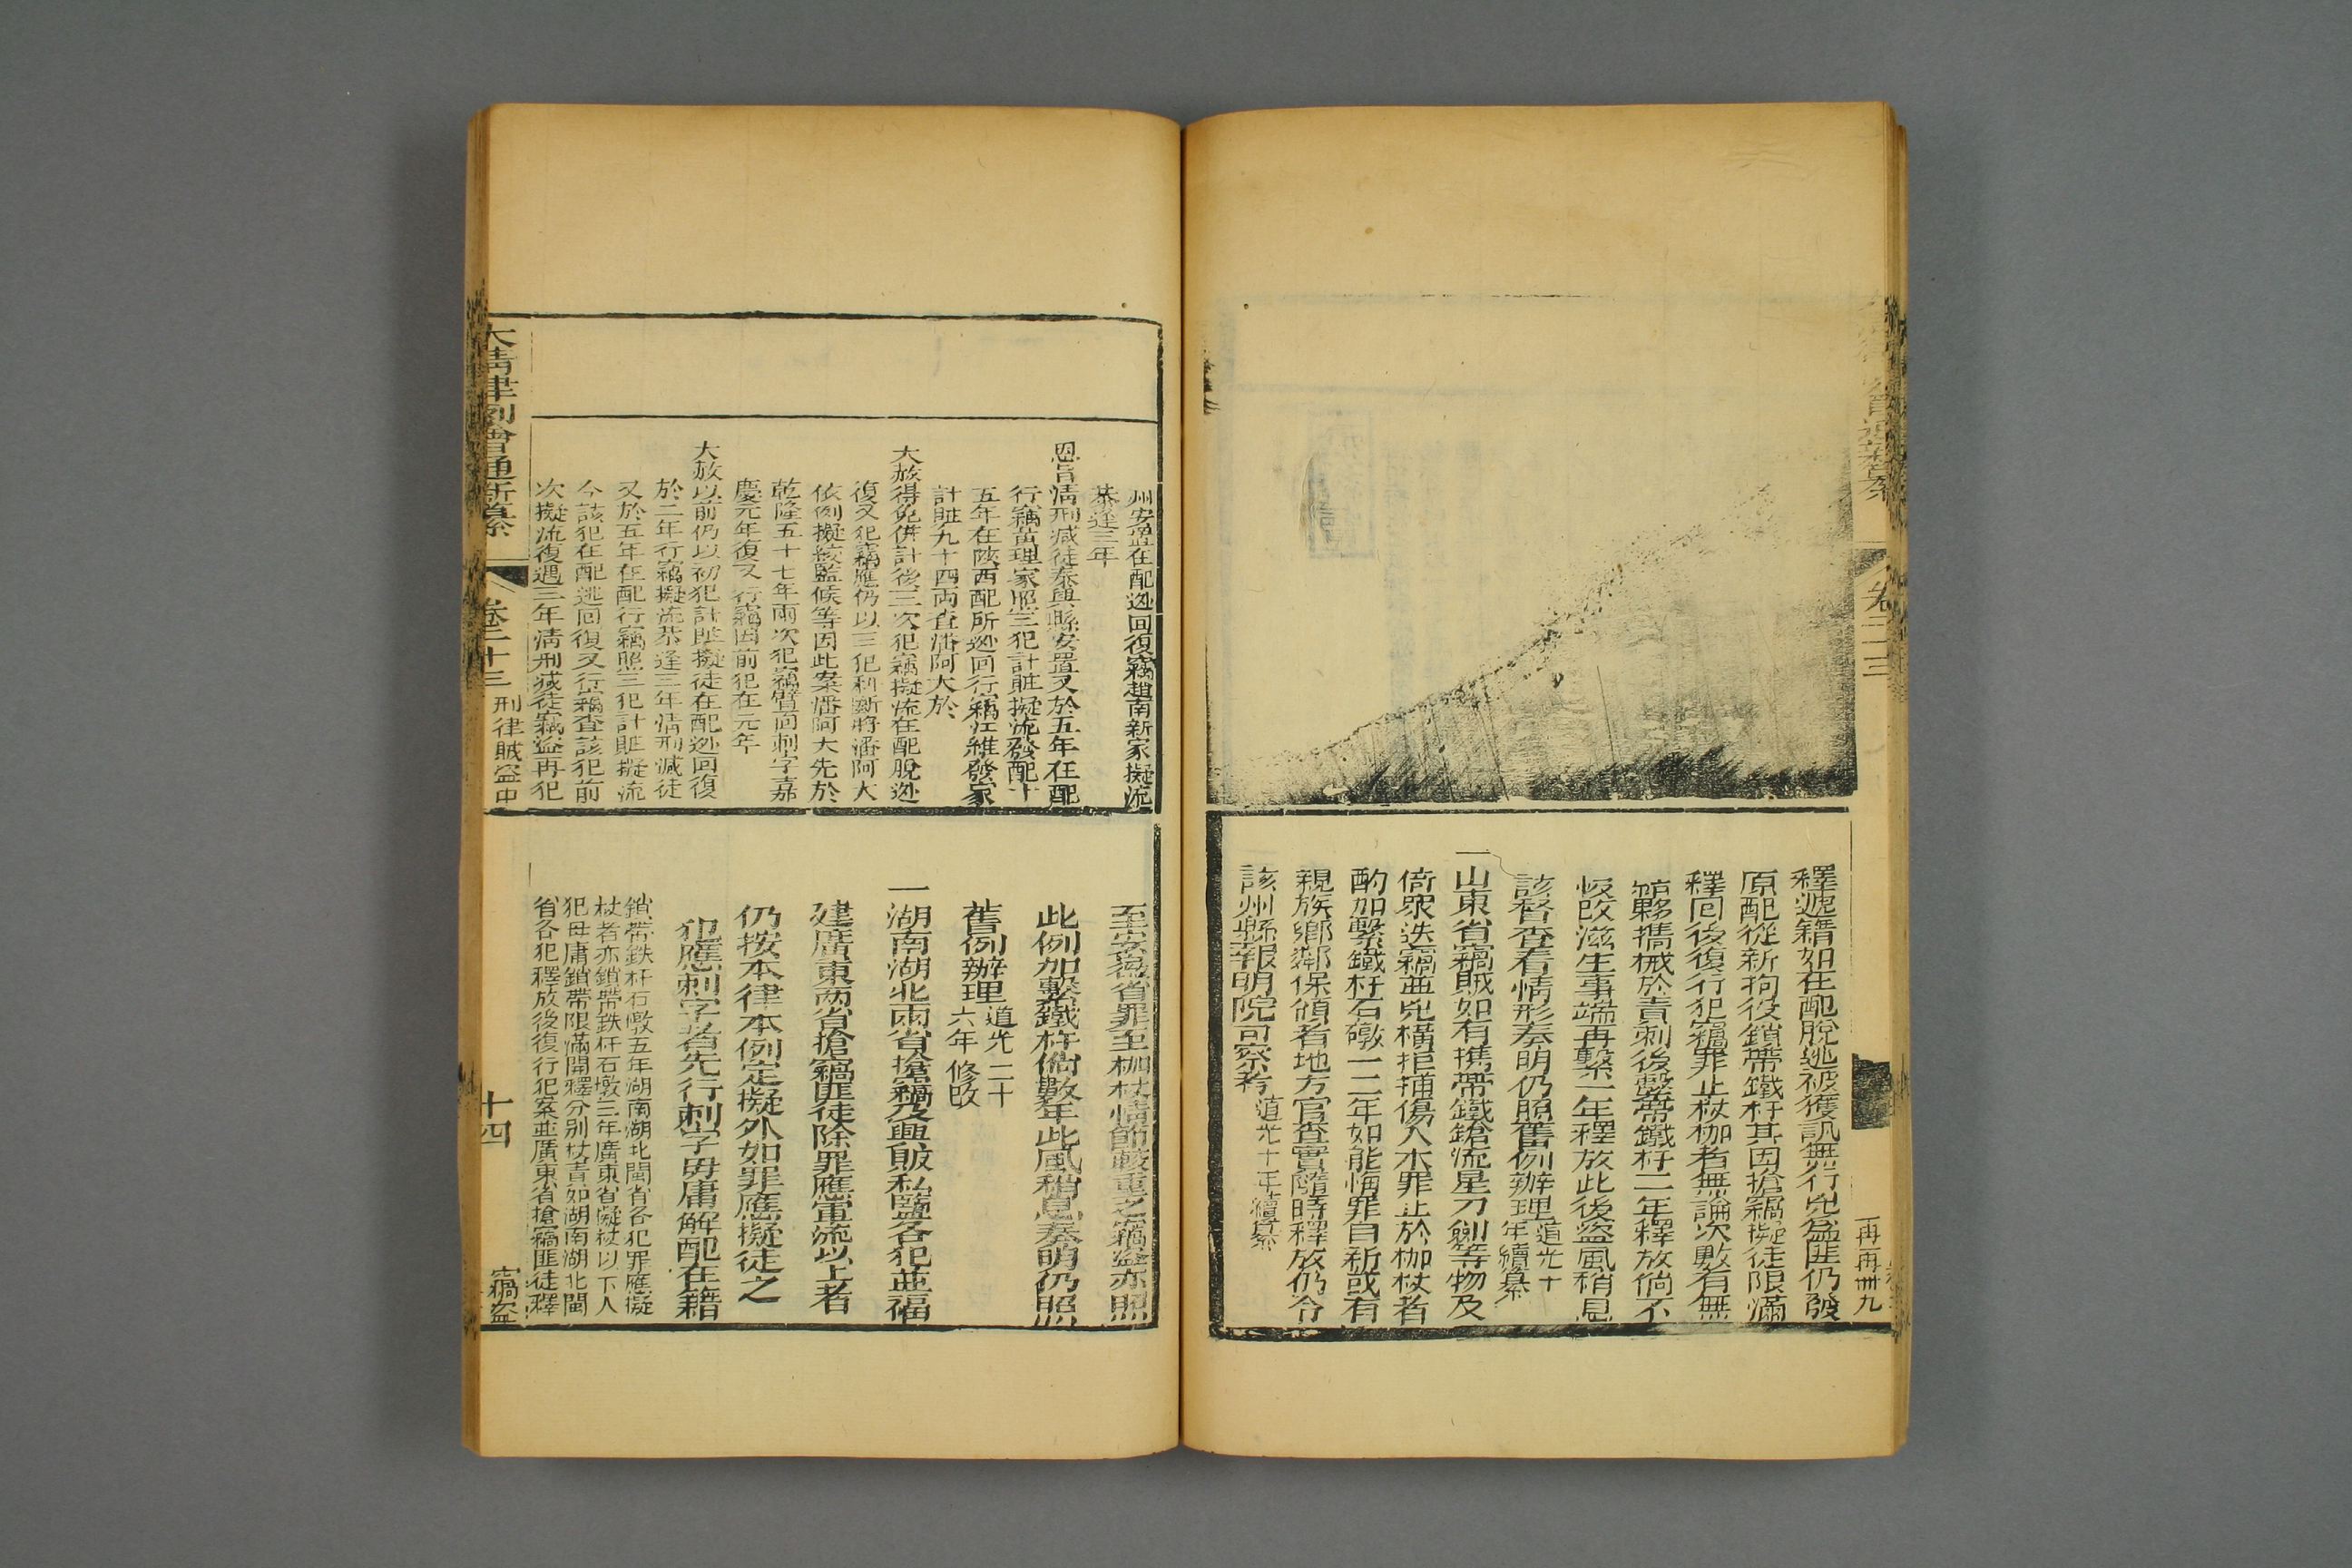 卷二十三
再再卌九
釋遞籍如在配脫逃被獲訊無行兇為匪仍發
原配從新拘役鎖帶鐵杆其因搶竊擬徒限滿
釋回後復行犯竊罪止杖枷者無論次數有無
結夥攜械於責刺後繫帶鐵杆二年釋放倘不
悛改滋生事端再繫一年釋放此後盜風稍息
該督查看情形奏明仍照舊例辦理道光十年續纂
一山東省竊賊如有攜帶鐵鎗流星刀劍等物及
倚眾迭竊並兇橫拒捕傷人本罪止於枷杖者
酌加繫鐵杆石礅一二年如能悔罪自新或有
親族鄉鄰保領者地方官查實隨時釋放仍令
該州縣報明院司察考道光十年續纂
州安置在配逃回復竊趙南新家擬流
恭逢三年
恩旨清刑減徒泰興縣安置又於五年在配
行竊黃理家照三犯計贓擬流發配十
五年在陝西配所逃回行竊江維發家
計贓九十四兩查潘阿大於
大赦得免併計後三次犯竊擬流在配脫逃
復又犯竊應仍以三犯科斷將潘阿大
依例擬絞監候等因此案潘阿大先於
乾隆五十七年兩次犯竊臂面刺字嘉
慶元年復又行竊因前犯在元年
大赦以前仍以初犯計贓擬徒在配逃回復
於二年行竊擬流恭逢三年清刑減徒
又於五年在配行竊照三犯計贓擬流
今該犯在配逃回復又行竊查該犯前
次擬流復遇三年清刑減徒竊盜再犯
至安徽省罪至枷杖情節較重之竊盜亦照
此例加繫鐵杆倘數年此風稍息奏明仍照
舊例辦理道光二十六年修改
一湖南湖北兩省搶竊及興販私鹽各犯並福
建廣東兩省搶竊匪徒除罪應軍流以上者
仍按本律本例定擬外如罪應擬徒之
犯應刺字者先行刺字毋庸解配在籍
鎖帶鉄杆石礅五年湖南湖北閩省各犯罪應擬
杖者亦鎖帶鉄杆石墩三年廣東省擬杖以下人
犯毋庸鎖帶限滿開釋分別杖責如湖南湖北閩
省各犯釋放後復行犯案並廣東省搶竊匪徒釋
大清律例會通新纂
卷二十三
刑律賊盜中
十四
竊盜